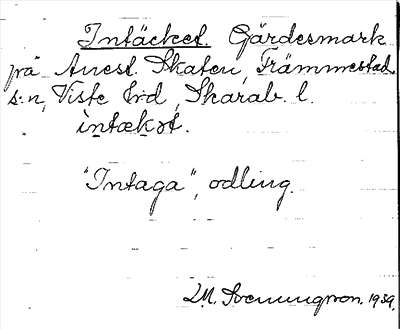 Intäcket. Gärdesmark
på Annest. Skaten, Främmestad
s:n, Viste hd, Skarab. l.
intækət.
"Intaga", odling.
D.M. Svenningson. 1939.